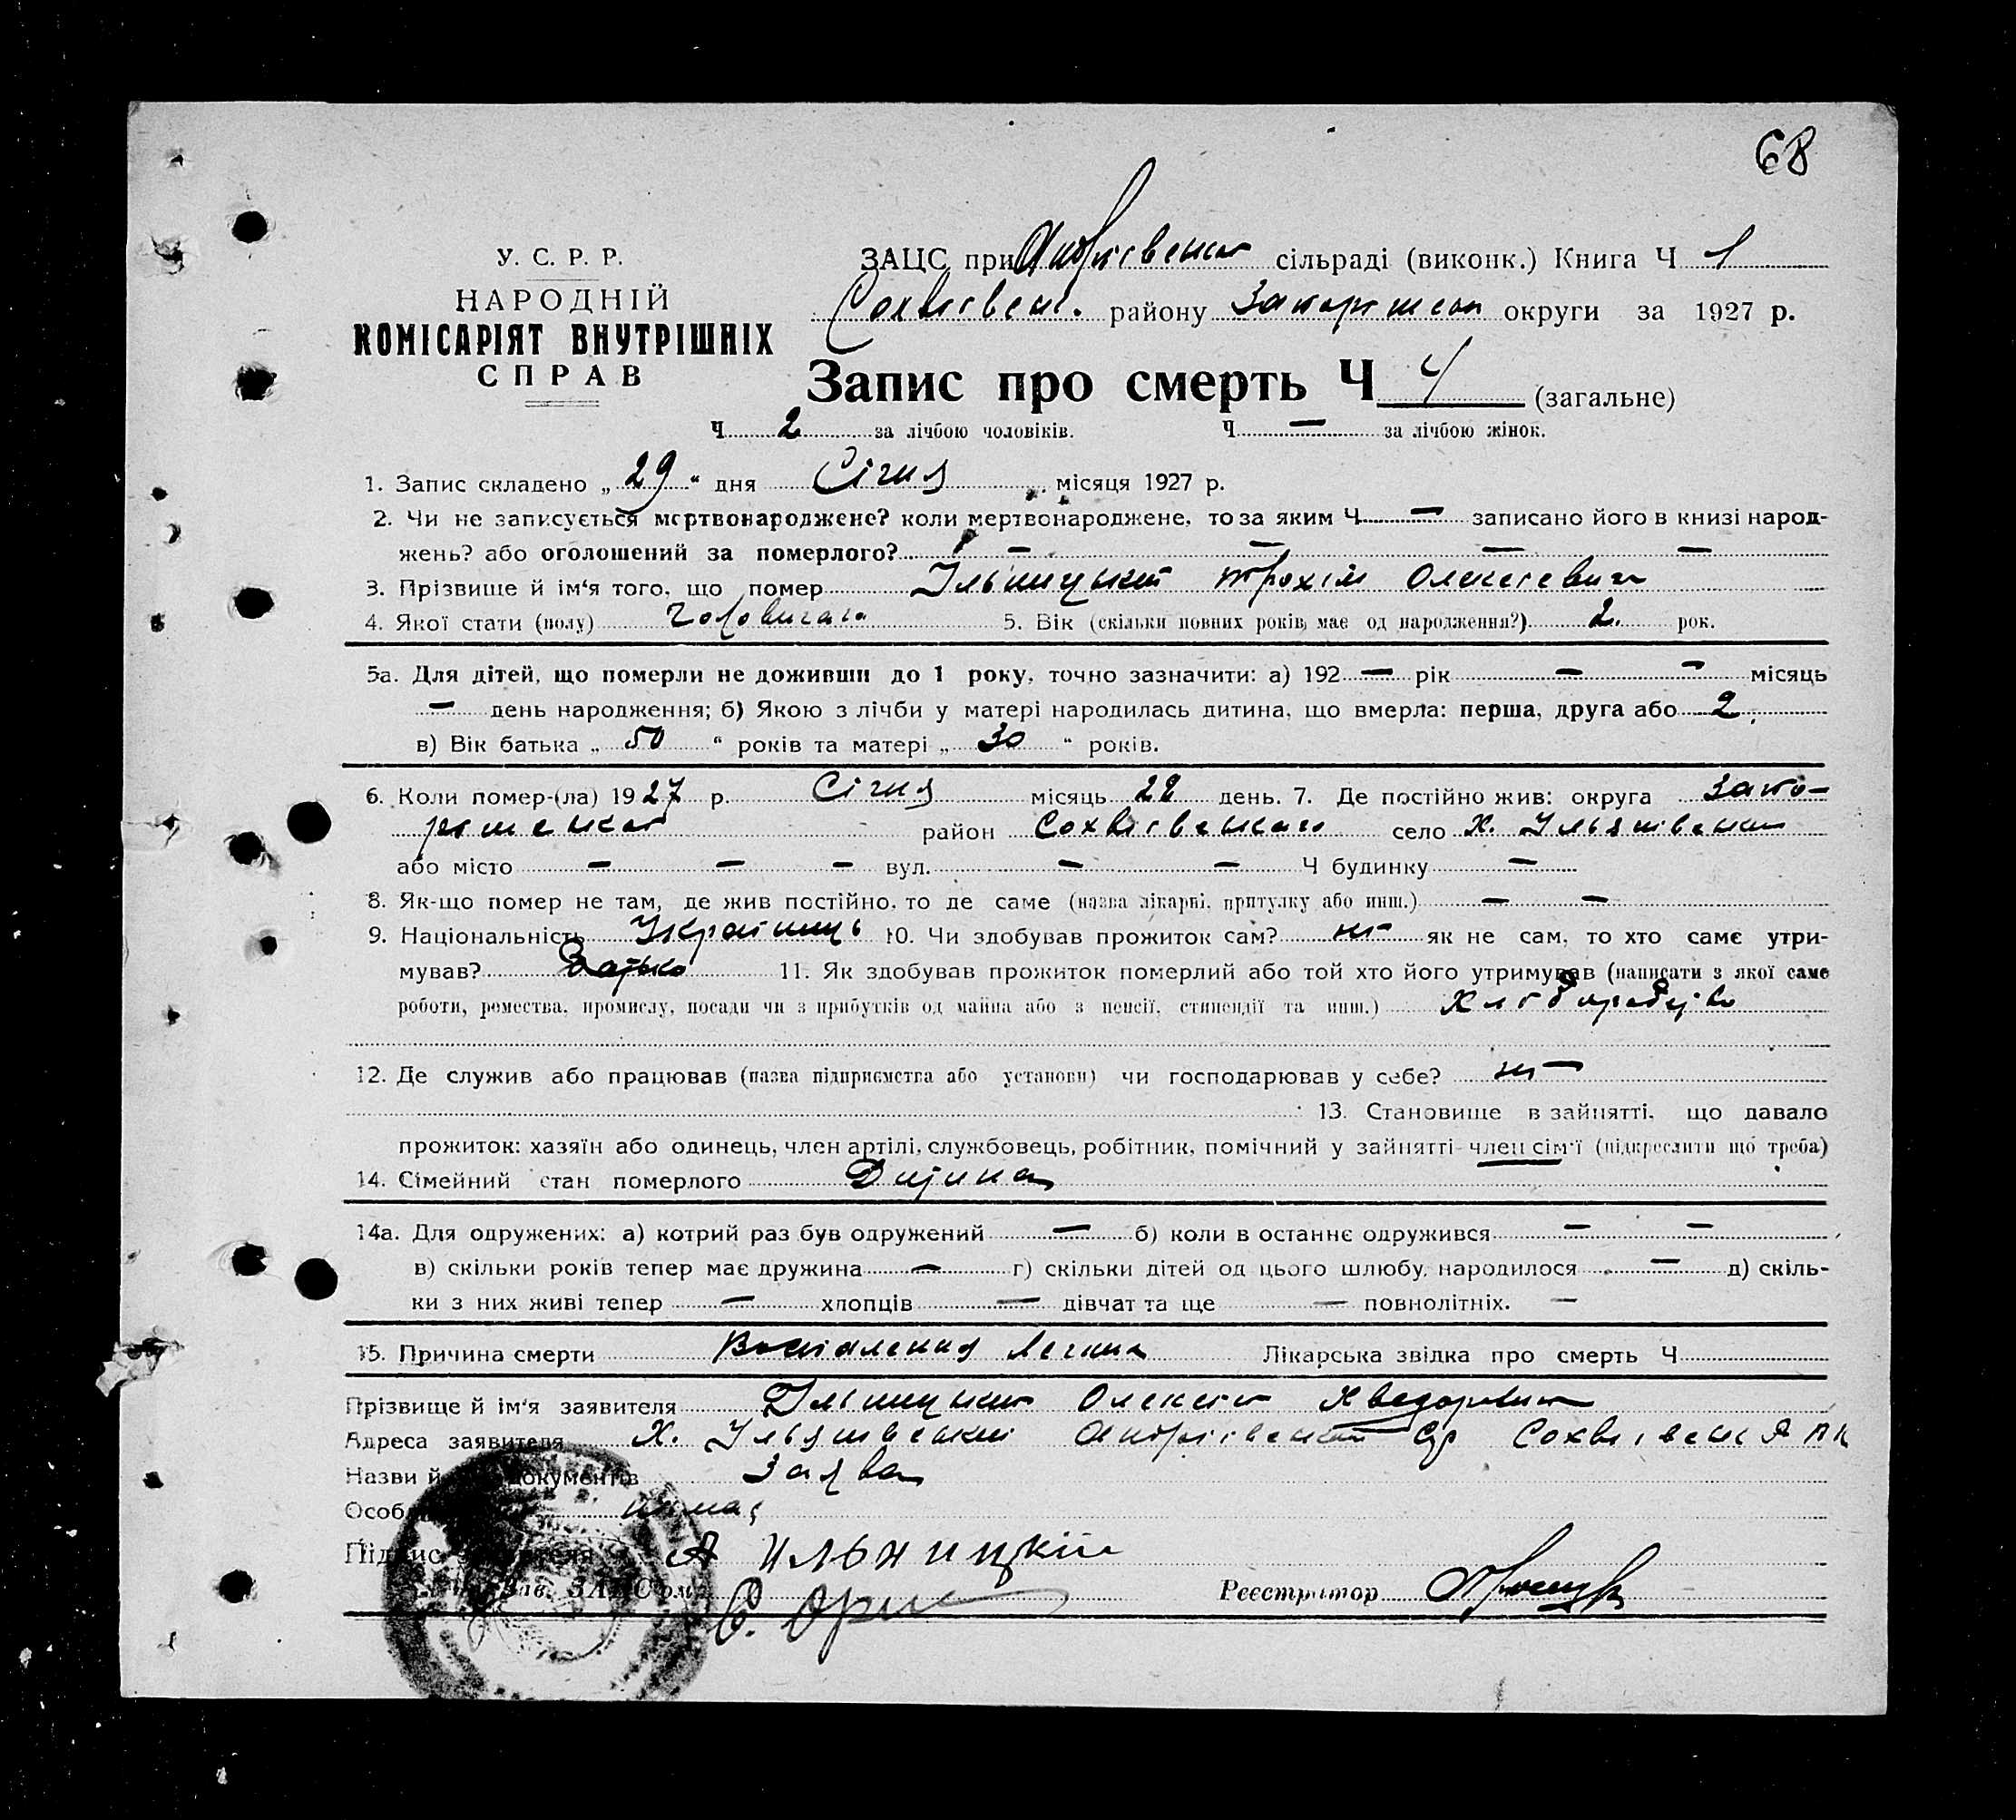 68
У. С. Р. Р.
НАРОДНІЙ
КОМІСАРІЯТ ВНУТРІШНІХ
СПРАВ
ЗАЦС при сільраді (виконк.) Книга Ч 1
району округи за 1927 р.
Запис про смерть Ч 4 (загальне)
Ч 2 за лічбою чоловіків. Ч — за лічбою жінок.
1. Запис складено „ 29 “ дня Січня місяця 1927 р.
2. Чи не записується мертвонароджене? коли мертвонароджене, то за яким Ч — записано його в книзі народ-
жень? або оголошений за померлого? — — — —
3. Прізвище й ім'я того, що помер Ільницький Трохім Олексієвич
4. Якої стати (полу) Чоловичаго 5. Вік (скільки повних років має од народження?) 2. рок.
5а. Для дітей, що померли не доживши до 1 року, точно зазначити: а) 192 — рік — — місяць
— день народження; б) Якою з лічби у матері народилась дитина, що вмерла: перша, друга або 2,
в) Вік батька „ 50 “ років та матері „ 30 “ років.
6. Коли помер-(ла) 1927 р. Січня місяць 22 день. 7. Де постійно жив: округа Запо-
район село Х.
або місто — — — вул. — — Ч будинку —
8. Як-що помер не там, де жив постійно, то де саме (назва лікарні, притулку або инш.) — —
9. Національність Українець 10. Чи здобував прожиток сам? ні як не сам, то хто саме утри-
мував? Батько 11. Як здобував прожиток померлий або той хто його утримував (написати з якої саме
роботи, ремества, промислу, посади чи з прибутків од майна або з пенсії, стипендії та инш.) Хліборобство
12. Де служив або працював (назва підприємства або установи) чи господарював у себе? ні —
13. Становище в зайнятті, що давало
прожиток: хазяїн або одинець, член артілі, службовець, робітник, помічний у зайнятті член сім'ї (підкреслити що треба)
14. Сімейний стан померлого Дитина
14а. Для одружених: а) котрий раз був одружений — б) коли в останнє одружився — —
в) скільки років тепер має дружина — г) скільки дітей од цього шлюбу народилося — д) скіль-
ки з них живі тепер — хлопців — дівчат та ще — повнолітніх. —
15. Причина смерти Воспаления Легких Лікарська звідка про смерть Ч
Прізвище й ім'я заявителя Ільницький Олексій Хведорович
Адреса заявителя Х.
Назви й документів Заява
Особ немає
Підпис А Ильницкій
Реєстратор